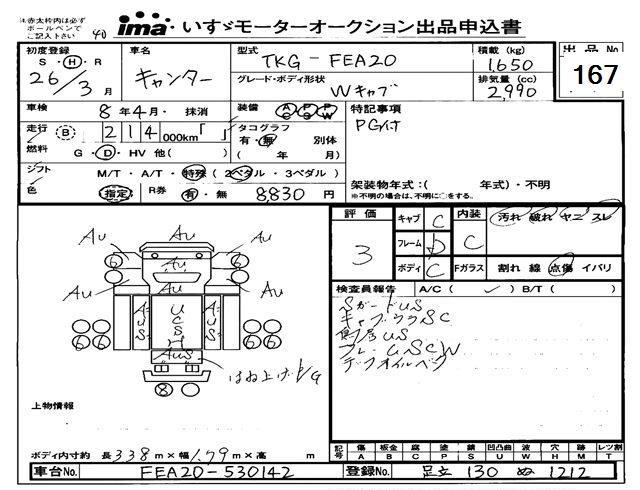 ※赤太枠内は必ず
ボールペンで
ご記入下さい
ima いすゞモーターオークション出品申込書
初度登録 車名 型式 TKG-FEA20 積載 (kg) 出品No
S・H・R 26/3月 キャンター グレード・ボディ形状 Wキャブ 1,650 167
排気量 (cc) 2,990
車検 8年4月・抹消 装備 AC PS PW 特記事項
走行 B 214 000km「 」 タコグラフ PG付
燃料 G・D・HV 他( ) 有・無 別体 ( 年 月)
シフト M/T・A/T・特殊 (2ペダル・3ペダル) 架装物年式:( 年式)・不明
色 指定 R券 有・無 8,830円 ※不明の場合は、不明に○をする。
評価 キャブ C 内装 汚れ 破れ ヤニ スレ
3 フレーム D C
ボディ C Fガラス 割れ 線 点傷 イバリ
検査員報告 A/C( ✓ )・B/T( )
SガードUS
キャブウラSC
US
フレームSCW
デフオイル
AU AU AU
6 6
AU AU AU
AUS UCSH AUS
6 6 6 6
AUS
はね上げP/G
8
上物情報
ボディ内寸約 長338m×幅1.79m×高 m
記号 傷A 板金B 腐C 凹P 塗S 錆U 凹凸曲W 波H 穴M 跡T レツ割
車台No. FEA20-530142 登録No. 足立 130 ぬ 1212